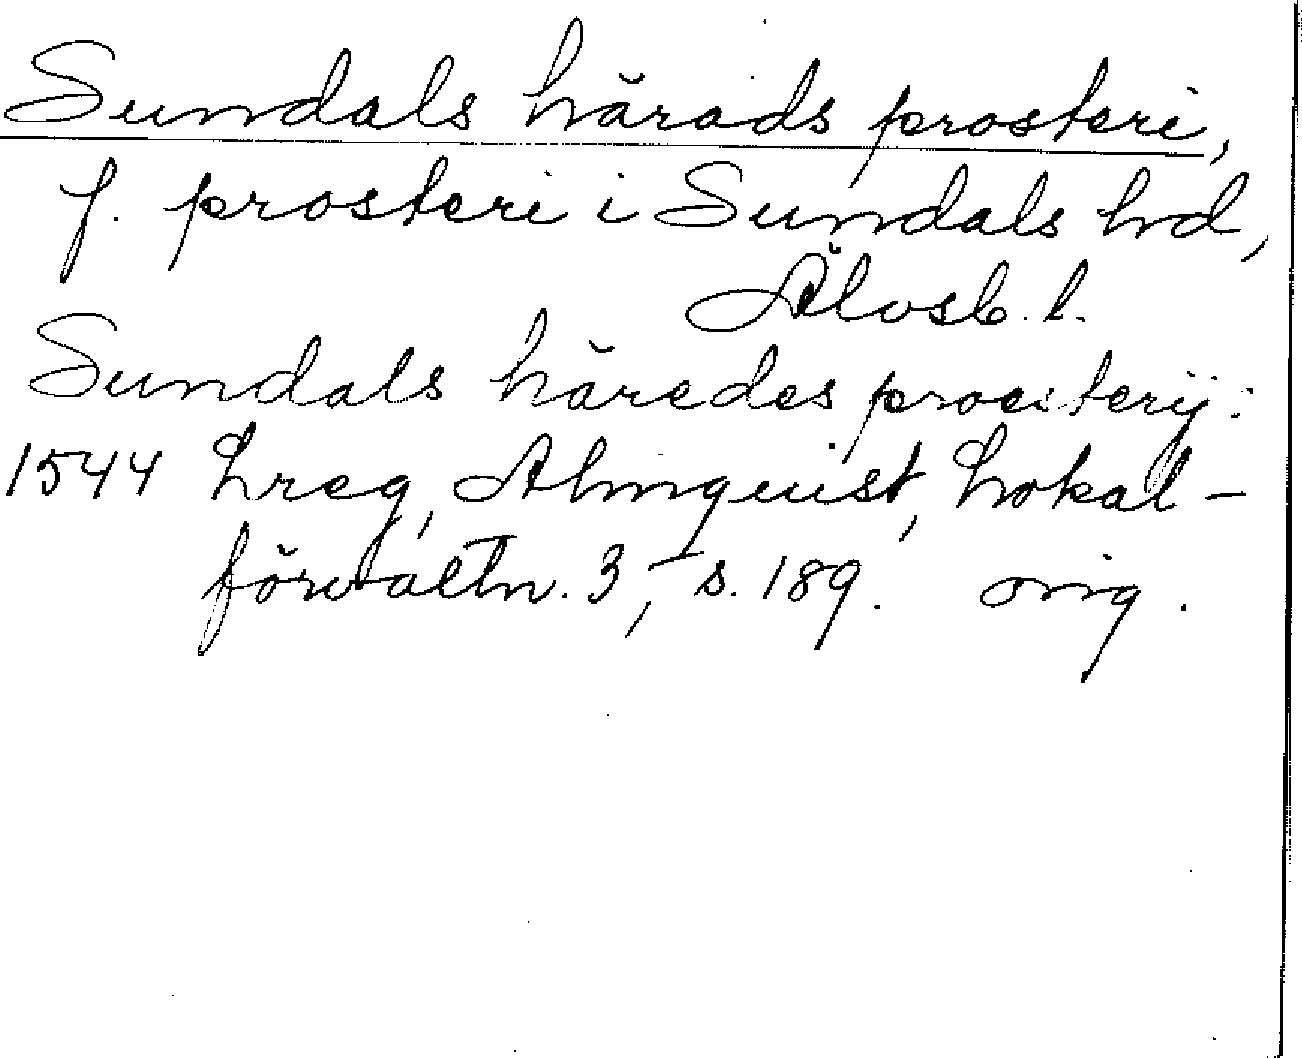 Sundals härads prosteri,
f. prosteri i Sundals hd,
Älvsb. l.
Sundals häredes proesterij:
1544 Lreg, Almquist, Lokal-
förvaltn. 3, s. 189. orig.